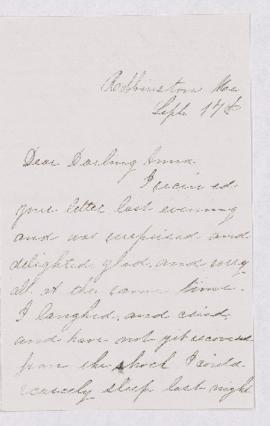 Robbinston Me
Sept. 17th
Dear Darling Anna
I received
your letter last evening
and was surprised and
delighted, glad, and sorry
all at the same time.
I laughed, and cried,
and have not yet recovered
from the shock I could
scarcely sleep last night